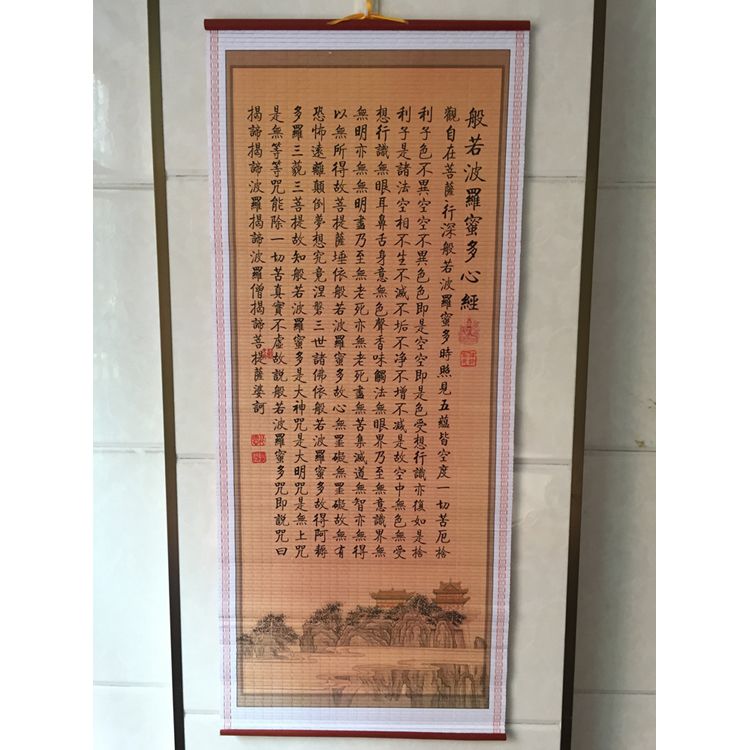 般若波羅蜜多心經
觀自在菩薩行深般若波羅蜜多時照見五蘊皆空度一切苦厄捨
利子色不異空空不異色色即是空空即是色受想行識亦復如是捨
利子是諸法空相不生不滅不垢不净不增不減是故空中無色無受
想行識無眼耳鼻舌身意無色聲香味觸法無眼界乃至無意識界無
無明亦無無明盡乃至無老死亦無老死盡無苦集滅道無智亦無得
以無所得故菩提薩埵依般若波羅蜜多故心無罣礙無罣礙故無有
恐怖遠離顛倒夢想究竟涅磐三世諸佛依般若波羅蜜多故得阿耨
多羅三藐三菩提故知般若波羅蜜多是大神咒是大明咒是無上咒
是無等等咒能除一切苦真實不虛故說般若波羅蜜多咒即說咒曰
揭諦揭諦波羅揭諦波羅僧揭諦菩提薩婆訶